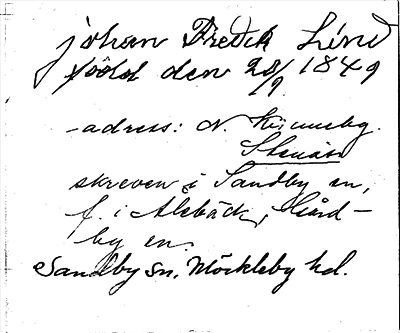 johan Fredek Lind
född den 28/9 1849
-adress: N. Kvinneby.
Stenåsa
skreven i Sandby sn,
f. i Alebäck, Gård-
by sn.
Sandby sn. Möckleby hd.